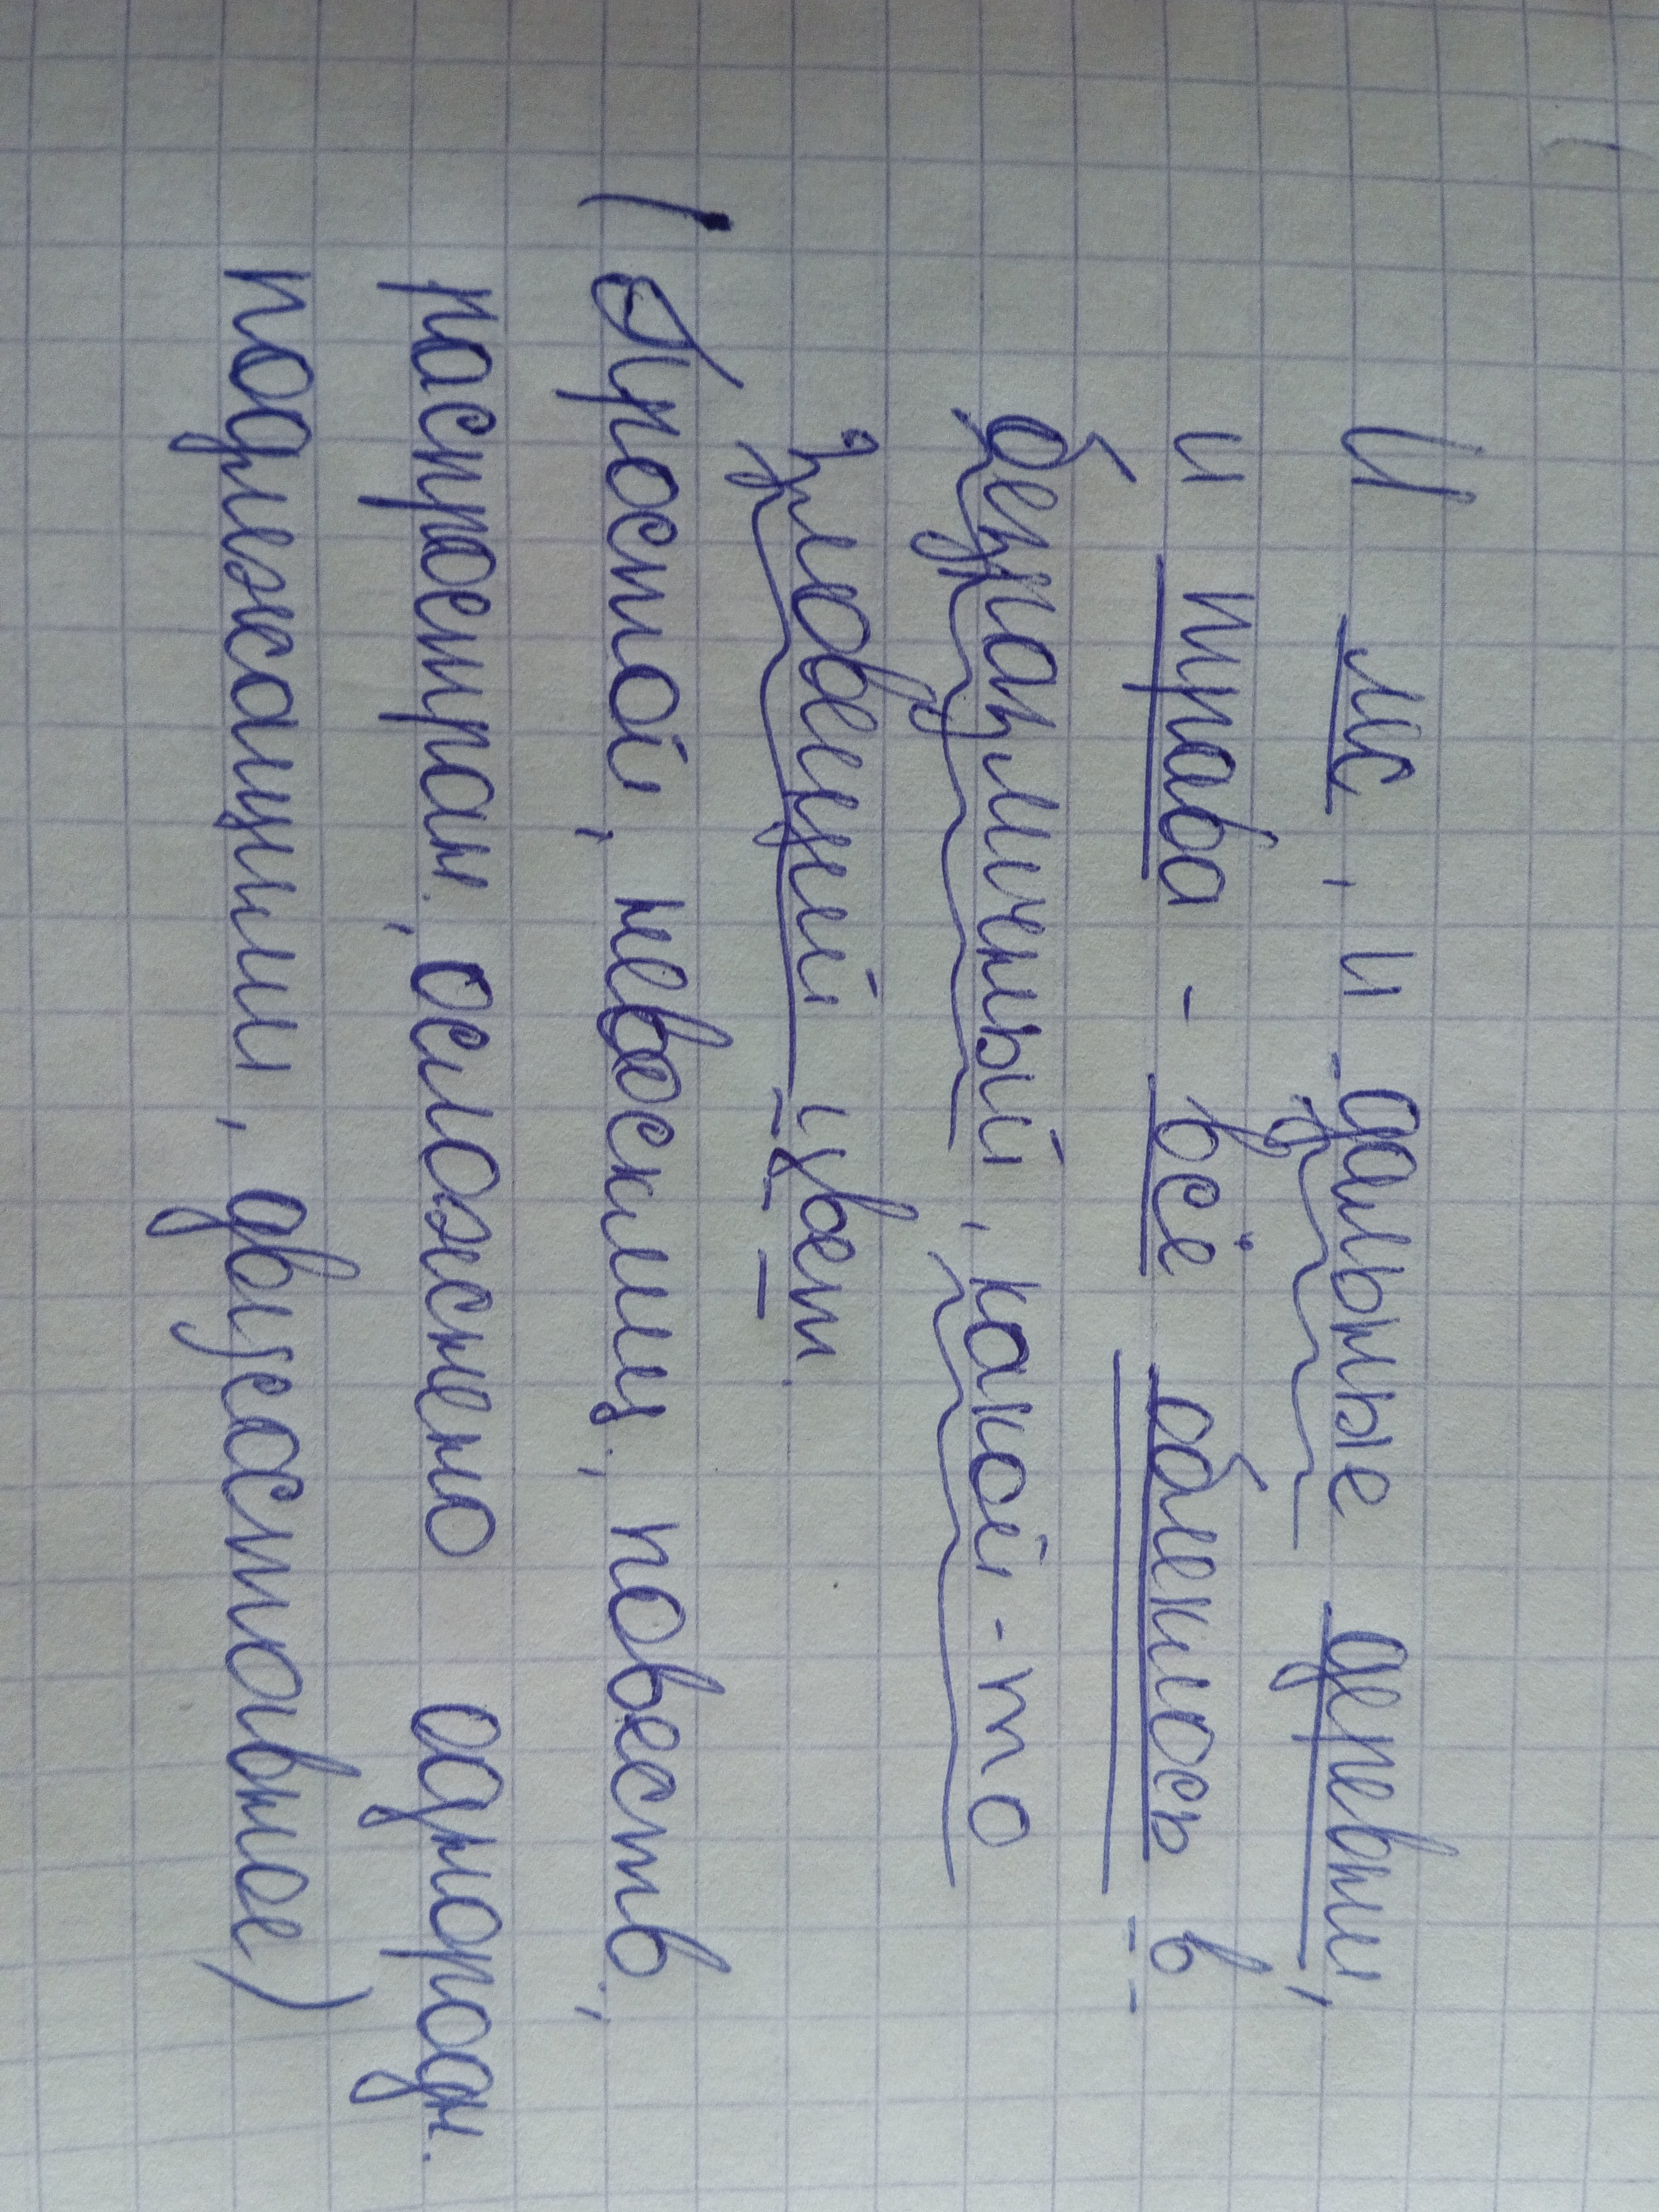 И лес, и дальные деревни,
и трава - всё облеклось в
безразличный, какой-то
зловещий цвет.
(Простой, невосклиц., повеств.,
распространн., осложнено однородн.
подлежащими, двусоставное)